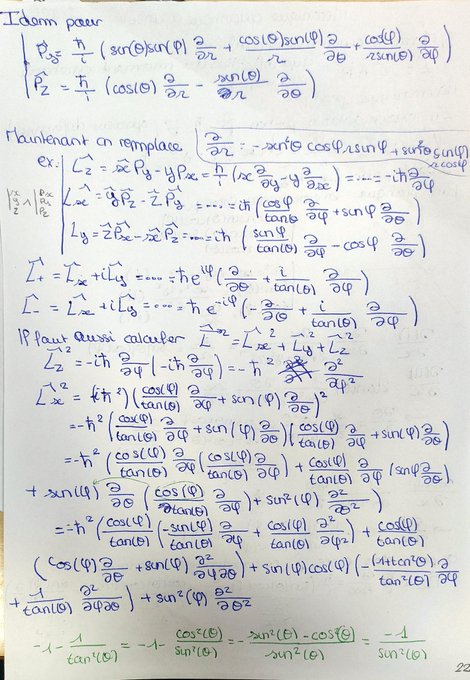 Idem pour
P̂y = ħ/i (sin(θ)sin(φ) ∂/∂r + cos(θ)sin(φ)/r ∂/∂θ + cos(φ)/(r sin(θ)) ∂/∂φ)
P̂z = ħ/i (cos(θ) ∂/∂r - sin(θ)/r ∂/∂θ)
Maintenant on remplace
∂/∂r = -sin²θ cosφ r sinφ + sin²θ sin(φ) r cosφ
ex: L̂z = x̂Py - yPx = ħ/i (x ∂/∂y - y ∂/∂x) = .... = -iħ ∂/∂φ
|x |Px
|y ∧ |Py
|z |Pz
L̂x = ŷP̂z - ẐP̂y = .... = iħ (cosφ/tanθ ∂/∂φ + sinφ ∂/∂θ)
L̂y = ẐP̂x - x̂P̂z = .... = iħ (sinφ/tan(θ) ∂/∂φ - cosφ ∂/∂θ)
L̂+ = L̂x + iL̂y = .... = ħ e^iφ (∂/∂θ + i/tan(θ) ∂/∂φ)
L̂- = L̂x + iL̂y = .... = ħ e^-iφ (-∂/∂θ + i/tan(θ) ∂/∂φ)
IP faut aussi calculer L̂² = L̂x² + L̂y² + L̂z²
L̂z² = -iħ ∂/∂φ (-iħ ∂/∂φ) = -ħ² ∂²/∂φ²
L̂x² = (-ħ²) (cos(φ)/tan(θ) ∂/∂φ + sin(φ) ∂/∂θ)²
= -ħ² (cos(φ)/tan(θ) ∂/∂φ + sin(φ) ∂/∂θ)(cos(φ)/tan(θ) ∂/∂φ + sin(φ) ∂/∂θ)
= -ħ² (cos(φ)/tan(θ) ∂/∂φ (cos(φ)/tan(θ) ∂/∂φ) + cos(φ)/tan(θ) ∂/∂φ (sinφ ∂/∂θ)
+ sin(φ) ∂/∂θ (cos(φ)/tan(θ) ∂/∂φ) + sin²(φ) ∂²/∂θ²)
= -ħ² (cos(φ)/tan(θ) (-sin(φ)/tan(θ) ∂/∂φ + cos(φ)/tan(θ) ∂²/∂φ²) + cos(φ)/tan(θ)
(cos(φ) ∂/∂θ + sin(φ) ∂²/∂φ∂θ) + sin(φ)cos(φ) (-(1+tan²θ)/tan²(θ) ∂/∂φ
+ 1/tan(θ) ∂²/∂φ∂θ) + sin²(φ) ∂²/∂θ²
-1 - 1/tan²(θ) = -1 - cos²(θ)/sin²(θ) = -sin²(θ) - cos²(θ)/sin²(θ) = -1/sin²(θ)
22